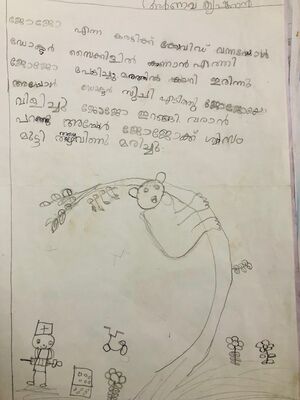 ജോജോ എന്ന കരടിക്ക് കോവിഡ് വന്നപ്പോൾ
ഡോക്ടർ സൈക്കിളിൽ കുന്നാൻ എത്തി
ജോജോ പേടിച്ചു മരത്തിൽ കയറി ഇരുന്നു
അപ്പോൾ ഡോക്ടർ സൂചി എടുത്തു ജോജോയെ
വിളിച്ചു ജോജോ ഇറങ്ങി വരാൻ
പറഞ്ഞു അപ്പോൾ ജോജോക്ക് ശ്വാസം
മുട്ടി വീണു മരിച്ചു.